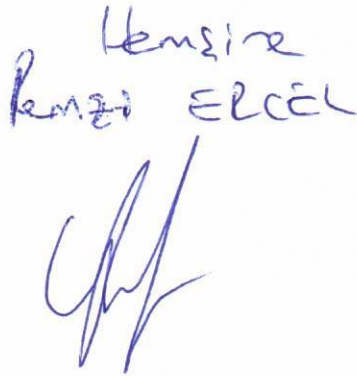 Hemşire
Remzi ERCEL